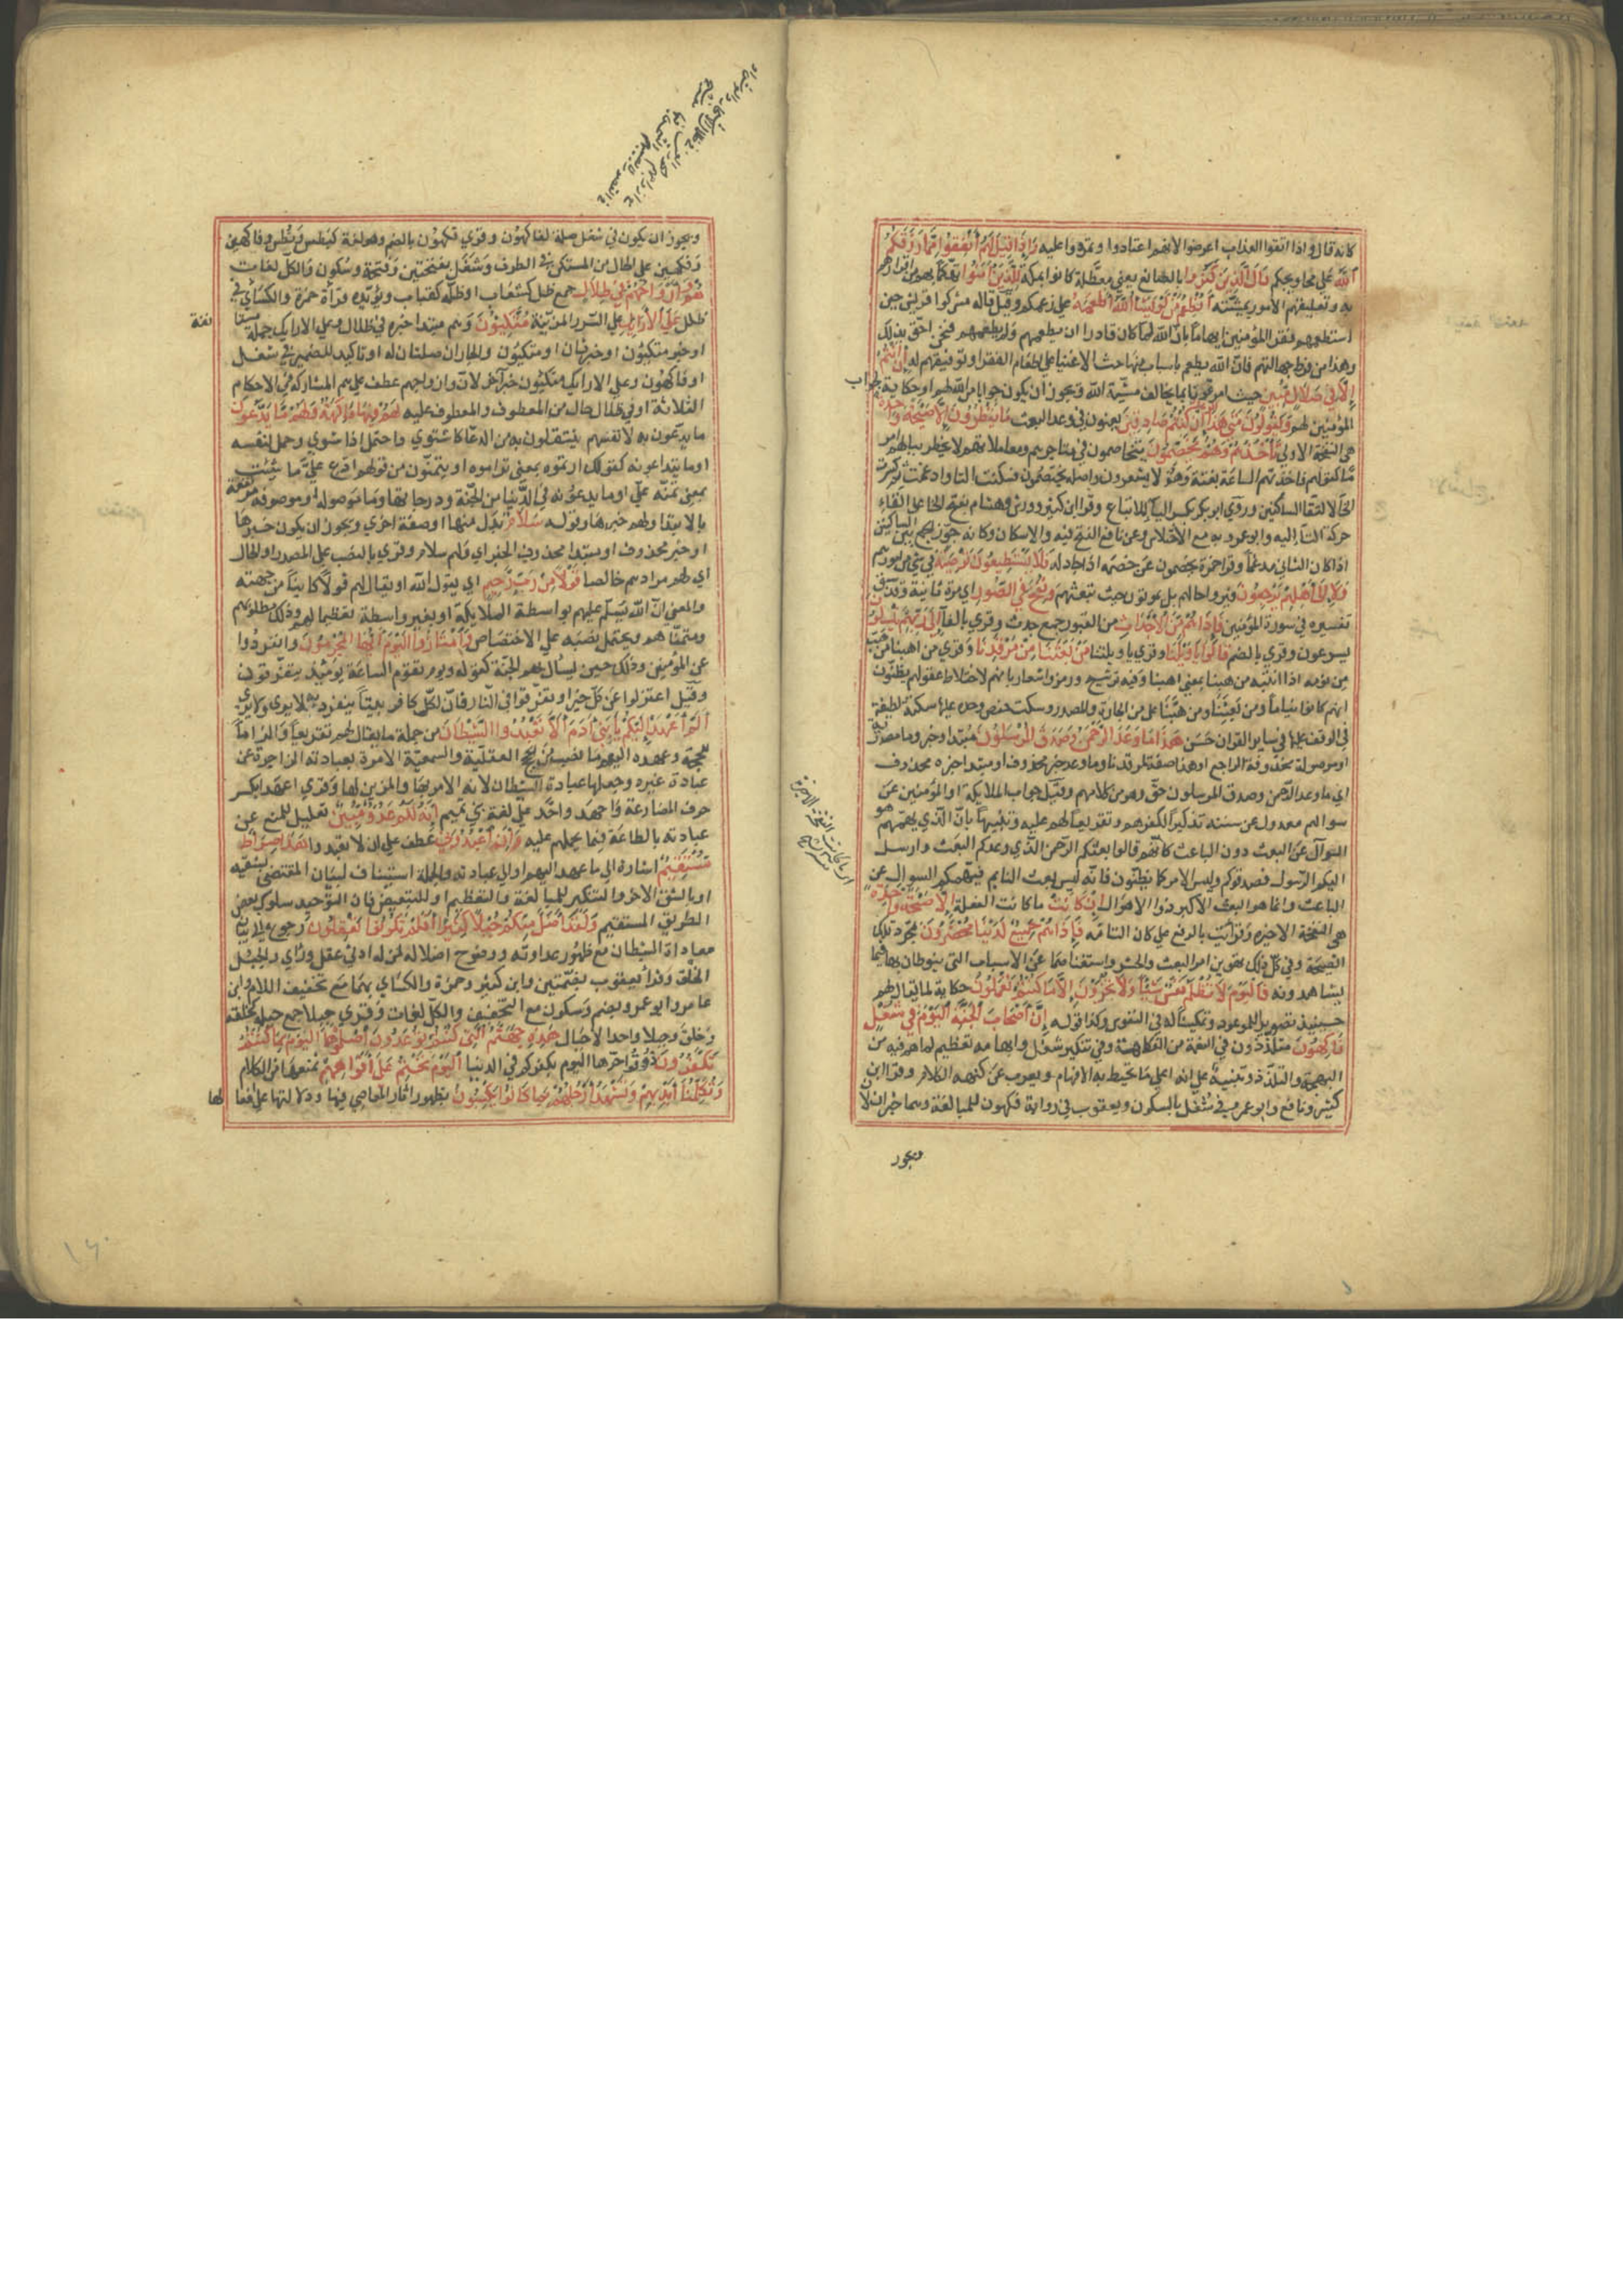 كانه قال واذا اتقوا العذاب اعرضوا لانهم اعتادوا وتمرنوا عليه وَإِذَا قِيلَ لَهُمْ أَنْفِقُوا مِمَّا رَزَقَكُمُ
اللَّهُ على محاويجكم قَالَ الَّذِينَ كَفَرُوا بالصانع يعني معطلة كانوا بمكة لِلَّذِينَ آمَنُوا تهكما بهم من اقرارهم
به وتعليقهم الأمور بمشيئته أَنُطْعِمُ مَنْ لَوْ يَشَاءُ اللَّهُ أَطْعَمَهُ على زعمكم وقيل قاله مشركوا قريش حين
استطعمهم فقراء المؤمنين ايهاما بان الله لما كان قادرا ان يطعمهم ولم يطعمهم فنحن احق بذلك
وهذا من فرط جهالتهم فان الله يطعم باسباب منها حث الاغنياء على اطعام الفقراء وتوفيقهم له إِنْ أَنْتُمْ
إِلَّا فِي ضَلَالٍ مُبِينٍ حيث امرتمونا بما يخالف مشيّة الله ويجوز ان يكون جوابا من الله لهم او حكاية لجواب
المؤمنين لهم وَيَقُولُونَ مَتَى هَذَا الْوَعْدُ إِنْ كُنْتُمْ صَادِقِينَ يعنون في وعد البعث مَا يَنْظُرُونَ إِلَّا صَيْحَةً وَاحِدَةً
هي النفخة الاولى تَأْخُذُهُمْ وَهُمْ يَخِصِّمُونَ يتخاصمون في متاجرهم ومعاملاتهم لا يخطر ببالهم امر
ها كقوله فاخذتهم الساعة بغتة وهم لا يشعرون واصله يختصمون فسكنت التاء وادغمت ثم كسرت
الخا لالتقا الساكنين وروى ابو بكر بكسر اليا للاتباع وقرا ابن كثير وورش وهشام بفتح الخا على القاء
حركة التا اليه وابو عمرو به مع الاختلاس وعن نافع الفتح فيه والاسكان وكانه جوز الجمع بين الساكنين
اذا كان الثاني مدغما وقرا حمزة يخصمون من خصمه اذا جادله فَلَا يَسْتَطِيعُونَ تَوْصِيَةً في شئ من امورهم
وَلَا إِلَى أَهْلِهِمْ يَرْجِعُونَ فيروا حالهم بل يموتون حيث تبغتهم وَنُفِخَ فِي الصُّورِ اي مرة ثانية وقد سبق
تفسيره في سورة المؤمنين فَإِذَا هُمْ مِنَ الْأَجْدَاثِ من القبور جمع جدث وقرئ بالفا إِلَى رَبِّهِمْ يَنْسِلُونَ
يسرعون وقرئ بالضم قَالُوا يَا وَيْلَنَا وقرئ يا ويلتنا مَنْ بَعَثَنَا مِنْ مَرْقَدِنَا وقرئ من اهبنا من هب
من نومه اذا انتبه من هبنا بمعنى اهبنا وفيه ترشيح ورمز واشعار بانهم لاختلاط عقولهم يظنون
انهم كانوا نياما ومن بعثنا ومن هبنا على من الجارة والمصدر وسكت حفص وحده عليها سكتة لطيفة
في الوقف عليها في ساير القران حسن هَذَا مَا وَعَدَ الرَّحْمَنُ وَصَدَقَ الْمُرْسَلُونَ مبتدا وخبر وما مصدرية
او موصولة محذوفة الراجع او هذا صفة لمرقدنا وما وعد خبر محذوف او مبتدا خبره محذوف
اي ما وعد الرحمن وصدق المرسلون حق وهو من كلامهم وقيل جواب الملايكة او المؤمنين عن
سوالهم معدول عن سننه تذكيرا لكفرهم وتقريعا لهم عليه وتنبيها بان الذي يهمهم هو
السوال عن البعث دون الباعث كانهم قالوا بعثكم الرحمن الذي وعدكم البعث وارسل
اليكم الرسول فصدقوكم وليس الامر كما تظنون فانه ليس ببعث النايم فيهمكم السوال عن
الباعث وانما هو البعث الاكبر ذو الاهوال إِنْ كَانَتْ ما كانت الفعلة إِلَّا صَيْحَةً وَاحِدَةً
هي النفخة الاخيره وقرأت بالرفع على كان التامّه فَإِذَا هُمْ جَمِيعٌ لَدَيْنَا مُحْضَرُونَ بمجرد تلك
الصيحة وفي كل ذلك تهوين امر البعث والحشر واستغناؤهما عن الاسباب التي ينوطان بها فيما
يشاهدونه فَالْيَوْمَ لَا تُظْلَمُ نَفْسٌ شَيْئًا وَلَا تُجْزَوْنَ إِلَّا مَا كُنْتُمْ تَعْمَلُونَ حكاية لما يقال لهم
حينيذ تصويرا للموعود وتمكينا له في النفوس وكذا قوله إِنَّ أَصْحَابَ الْجَنَّةِ الْيَوْمَ فِي شُغُلٍ
فَاكِهُونَ متلذذون في النعمة من الفكاهة وفي تنكير شغل وابهامه تعظيم لما هم فيه من
البهجة والتلذذ وتنبيه على انه اعلى ما يحيط به الافهام ويعرب عن كنهه الكلام وقرا ابن
كثير ونافع وابو عمرو في شغل بالسكون ويعقوب في رواية فكهون للمبالغة وهما خبران لان
ويجوز
اي ما كانت النفخة الاخيرة
ويجوز ان يكون في شغل صلة لفاكهون وقرئ فكهون بالضم وهو لغة كنطس ونطس وفاكهين
وفكهين على الحال من المستكن في الظرف وشغل بفتحتين وفتحة وسكون والكل لغات
هُمْ وَأَزْوَاجُهُمْ فِي ظِلَالٍ جمع ظل كشعاب او ظلة كقباب ويؤيده قرأة حمزة والكسائي في
ظلل عَلَى الْأَرَائِكِ على السرر المزينة مُتَّكِئُونَ وهم مبتدا خبره في ظلال وعلى الارايك جملة مستانفة
او خبر ثان او متكيون والجاران صلتان له او تاكيد للضمير في شغل
او فاكهون وعلى الارايك متكيون خبر آخر لان وازواجهم عطف على هم المشاركة في الاحكام
الثلاثة او في ظلال حال من المعطوف والمعطوف عليه لَهُمْ فِيهَا فَاكِهَةٌ وَلَهُمْ مَا يَدَّعُونَ
ما يدعون به لانفسهم يفتعلون به من الدعا كاشتوى واحتمل اذا شوي وحمل لنفسه
او ما يتداعونه كقولك ارتموه بمعنى تراموه او يتمنون من قولهم ادع علي ما شئت
بمعنى تمنه علي او ما يدعونه في الدنيا من الجنة ودرجاتها وما موصولة او موصوفة مرتفعة
بالابتدا ولهم خبرها وقوله سَلَامٌ بدل منها او صفة اخرى ويجوز ان يكون خبرها
او خبر محذوف او مبتدا محذوف الخبر اي ولهم سلام وقرئ بالنصب على المصدر او الحال
اي لهم مرادهم خالصا قَوْلًا مِنْ رَبٍّ رَحِيمٍ اي يقول الله او يقال لهم قولا كاينا من جهته
والمعنى ان الله يسلم عليهم بواسطة الملايكة او بغير واسطة تعظيما لهم وذلك مطلوبهم
ومتمناهم ويحتمل نصبه على الاختصاص وَامْتَازُوا الْيَوْمَ أَيُّهَا الْمُجْرِمُونَ وانفردوا
عن المؤمنين وذلك حين يسار بهم الى الجنة كقوله ويوم تقوم الساعة يومئذ يتفرقون
وقيل اعتزلوا عن كل خير او تفرقوا في النار فان لكل كافر بيتا ينفرد به لا يرى ولا يُرى
أَلَمْ أَعْهَدْ إِلَيْكُمْ يَا بَنِي آدَمَ أَلَّا تَعْبُدُوا الشَّيْطَانَ من جملة ما يقال لهم تقريعا والزاما
للحجة وعهده اليهم ما نصب من الحجج العقلية والسمعية الامرة بعبادته الزاجرة عن
عبادة غيره وجعلها عبادة الشيطان لانه الامر بها والمزين لها وقرئ اعهد بكسر
حرف المضارعة واحهد واحد على لغة بني تميم إِنَّهُ لَكُمْ عَدُوٌّ مُبِينٌ تعليل للمنع عن
عبادته بالطاعة فيما يحملهم عليه وَأَنِ اعْبُدُونِي عطف على ان لا تعبدوا هَذَا صِرَاطٌ
مُسْتَقِيمٌ اشارة الى ما عهد اليهم او الى عبادته والجملة استيناف لبيان المقتضي للعهد بشقيه
او بالشق الاخر والتنكير للمبالغة والتعظيم او للتبعيض فان التوحيد سلوك بعض
الطريق المستقيم وَلَقَدْ أَضَلَّ مِنْكُمْ جِبِلًّا كَثِيرًا أَفَلَمْ تَكُونُوا تَعْقِلُونَ رجوع الى بيان
معاداة الشيطان مع ظهور عداوته ووضوح اضلاله لمن له ادنى عقل وراي والجبل
الخلق وقرأ يعقوب بضمتين وابن كثير وحمزة والكسائي بهما مع تخفيف اللام وابن
عامر وابو عمرو بضم وسكون مع التخفيف والكل لغات وقرئ جبلا جمع جبلة كخلقة
وخلق وجيلا واحد الاجيال هَذِهِ جَهَنَّمُ الَّتِي كُنْتُمْ تُوعَدُونَ اصْلَوْهَا الْيَوْمَ بِمَا كُنْتُمْ
تَكْفُرُونَ ذوقوا حرها اليوم بكفركم في الدنيا الْيَوْمَ نَخْتِمُ عَلَى أَفْوَاهِهِمْ نمنعها من الكلام
وَتُكَلِّمُنَا أَيْدِيهِمْ وَتَشْهَدُ أَرْجُلُهُمْ بِمَا كَانُوا يَكْسِبُونَ بظهور اثار المعاصي فيها ودلالتها على افعالها
١٤٠